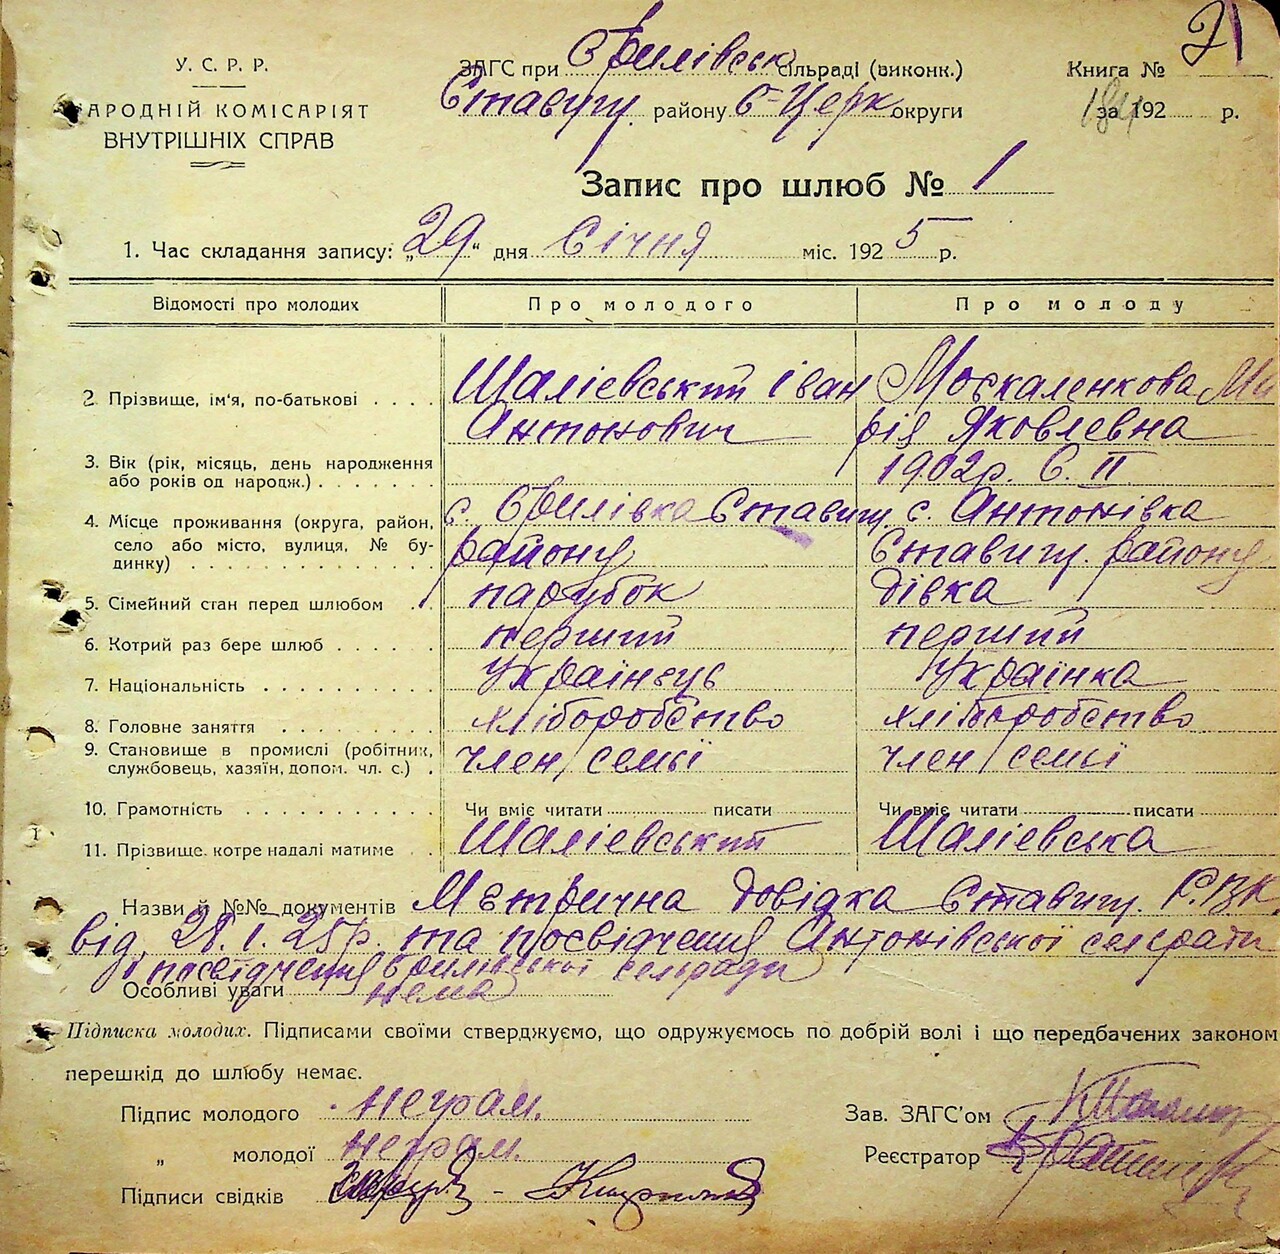 У. С. Р. Р.
НАРОДНІЙ КОМІСАРІЯТ
ВНУТРІШНІХ СПРАВ
ЗАГС при сільраді (виконк.)
Ставищ. району Б-Церк округи
Книга №
за 192 р.
Запис про шлюб № 1
1. Час складання запису: „29“ дня Січня міс. 1925 р.
Відомості про молодих
Про молодого
Про молоду
2. Прізвище, ім'я, по-батькові
Шаліевський Іван
Антонович
Москаленкова Ма
рія Яковлевна
3. Вік (рік, місяць, день народження
або років од народж.)
1902р. 6. II
4. Місце проживання (округа, район,
село або місто, вулиця, № бу-
динку)
с. Брилівка Ставищ.
району
с. Антонівка
Ставищ. району
5. Сімейний стан перед шлюбом
парубок
дівка
6. Котрий раз бере шлюб
перший
перший
7. Національність
Українець
Українка
8. Головне заняття
хліборобство
хліборобство
9. Становище в промислі (робітник,
службовець, хазяїн, допом. чл. с.)
член семьї
член семьї
10. Грамотність
Чи вміє читати писати
Чи вміє читати писати
11. Прізвище котре надалі матиме
Шаліевський
Шаліевська
Назви й №№ документів Метрична довідка Ставищ. Р.В.К.
від 28.I.25р. та посвідчення Антонівської сельради
і посвідчення Брилівської сельради
Особливі уваги нема
Підписка молодих. Підписами своїми стверджуємо, що одружуємось по добрій волі і що передбачених законом
перешкід до шлюбу немає.
Підпис молодого неграм.
„ молодої неграм.
Підписи свідків
Зав. ЗАГС'ом
Реєстратор